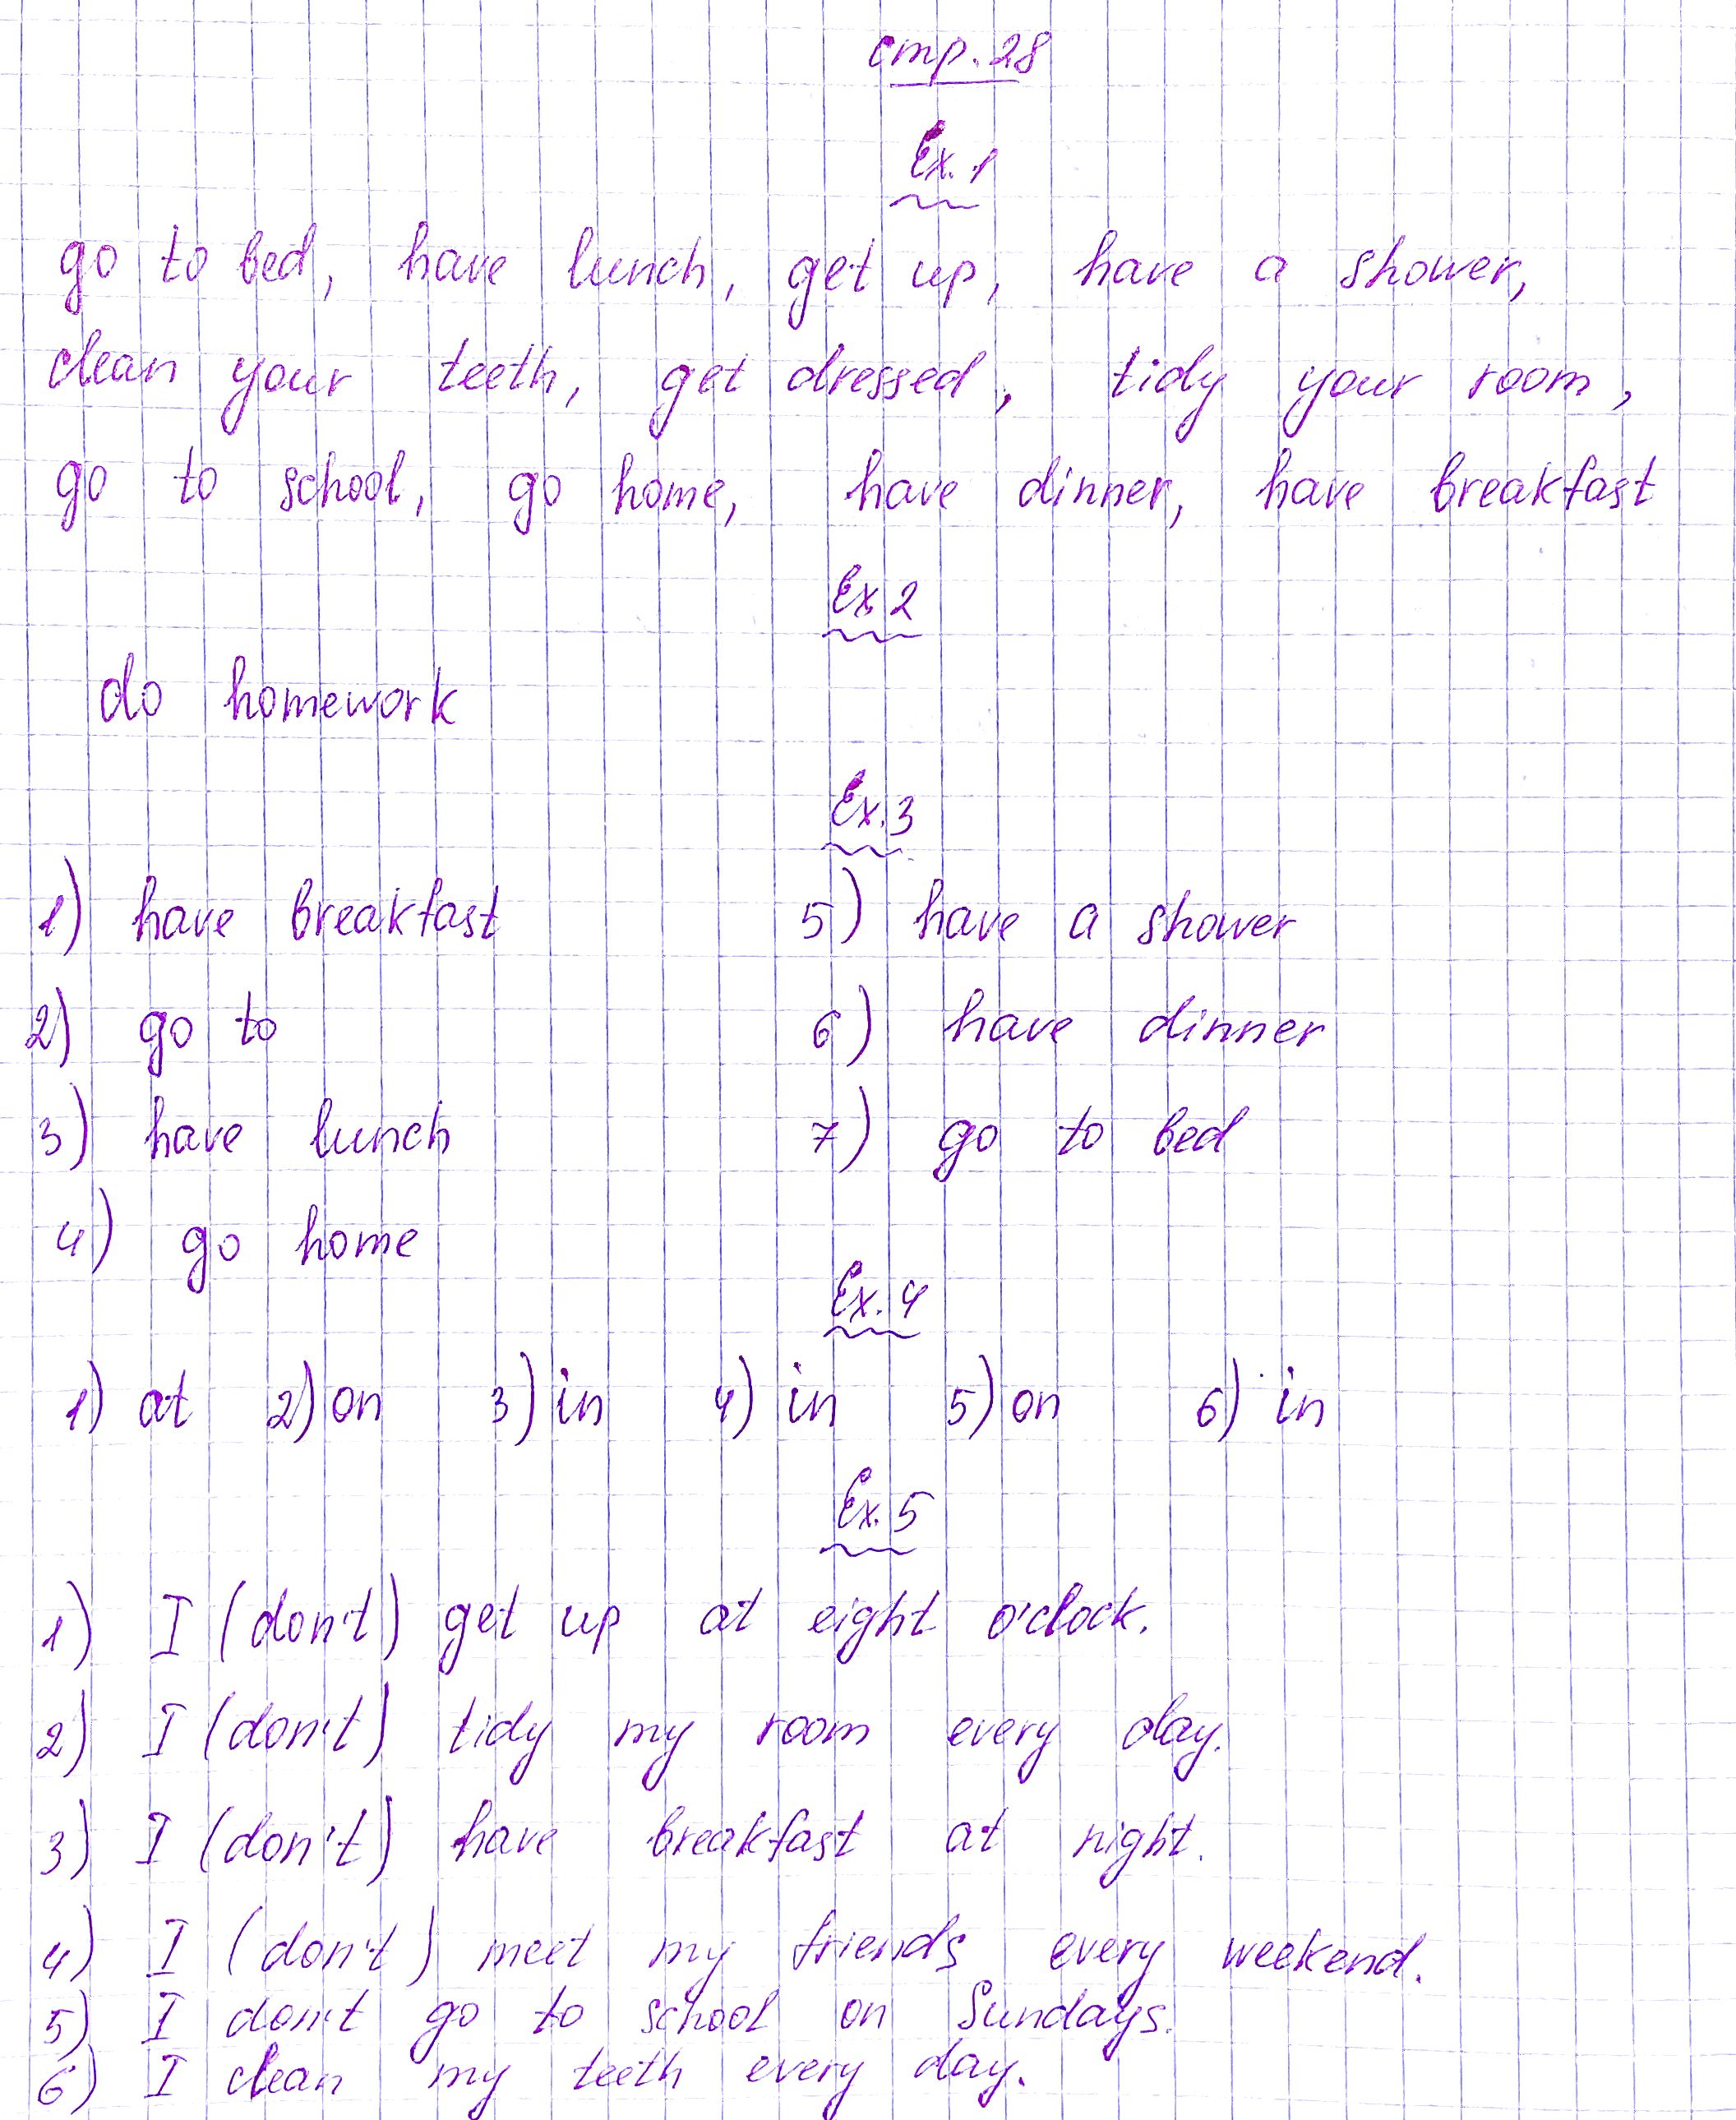 стр. 28
Ex. 1
go to bed, have lunch, get up, have a shower,
clean your teeth, get dressed, tidy your room,
go to school, go home, have dinner, have breakfast
Ex. 2
do homework
Ex. 3
1) have breakfast 5) have a shower
2) go to 6) have dinner
3) have lunch 7) go to bed
4) go home
Ex. 4
1) at 2) on 3) in 4) in 5) on 6) in
Ex. 5
1) I (don't) get up at eight o'clock.
2) I (don't) tidy my room every day.
3) I (don't) have breakfast at night.
4) I (don't) meet my friends every weekend.
5) I don't go to school on Sundays.
6) I clean my teeth every day.